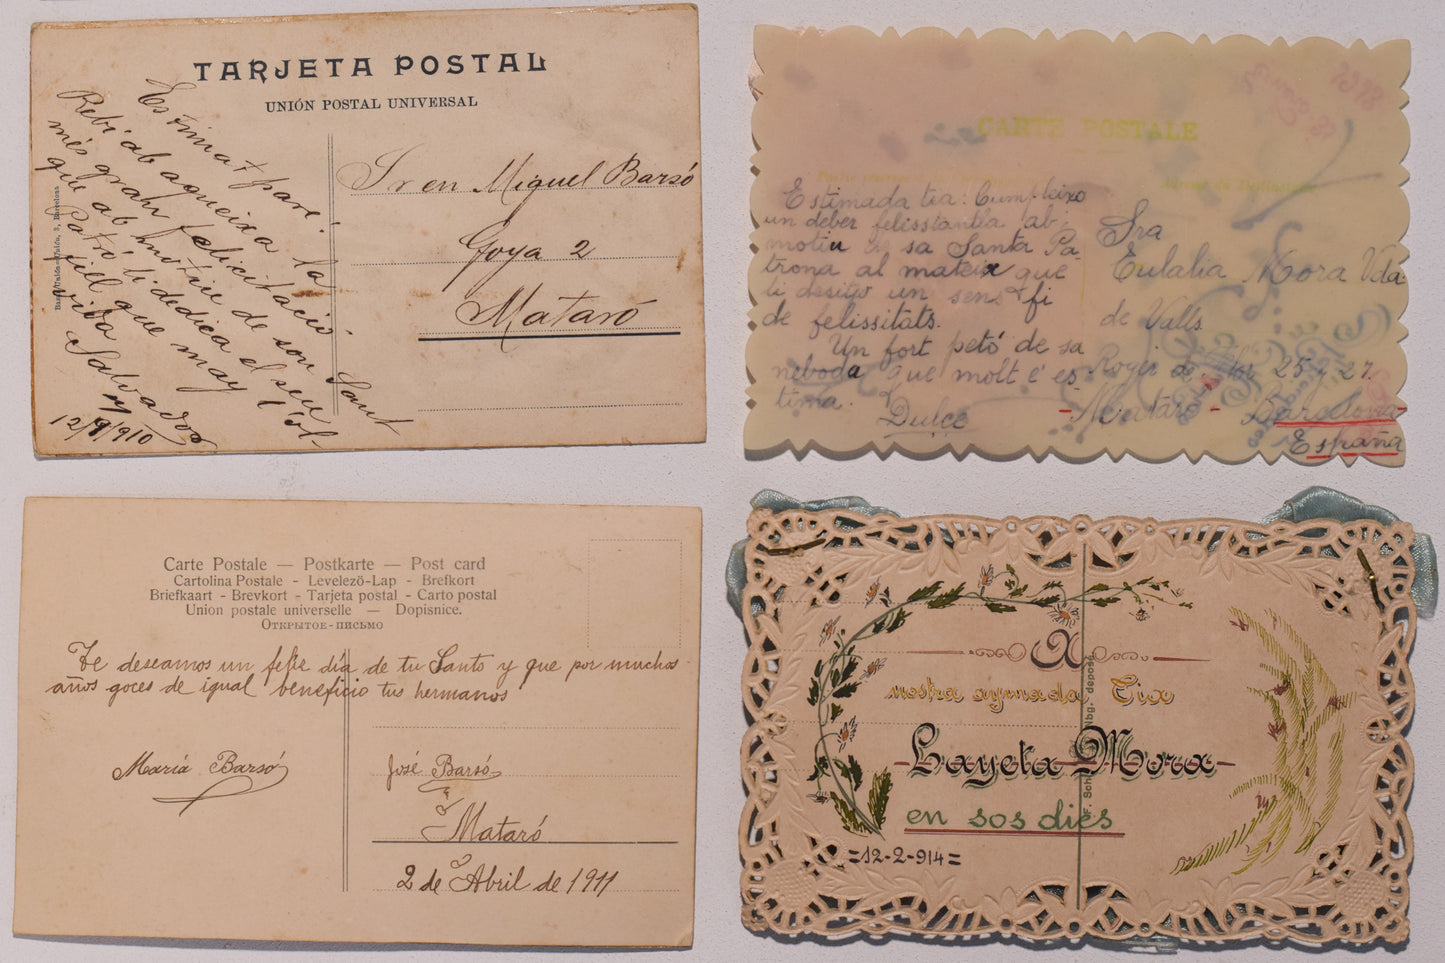 TARJETA POSTAL
UNIÓN POSTAL UNIVERSAL
Estimat pare:
Rebi ab aqueixa la
més gran felicitació
que ab motiu de son Sant
Patró, li dedica el seu
fill que may l'ol-
vida
Salvador
12/9/910
Sr en Miquel Barsó
Goya 2
Mataró
CARTE POSTALE
Estimada tia: Cumpleixo
un deber felissitantla ab
motiu de sa Santa Pa-
trona al mateix que
li desitjo un sens fi
de felissitats.
Un fort petó de sa
neboda que molt l'es-
tima.
Dulce
Sra
Eulalia Mora Vda
de Valls
Roger de Flor 25 y 27
- Mataró - Barcelona
España
Carte Postale — Postkarte — Post card
Cartolina Postale - Levelező-Lap - Brefkort
Briefkaart - Brevkort - Tarjeta postal - Carto postal
Union postale universelle — Dopisnice.
Открытое-письмо
Te deseamos un felis día de tu Santo y que por muchos
años goces de igual beneficio tus hermanos
María Barsó
José Barsó
Mataró
2 de Abril de 1911
A
nostra aymada Tia
Layeta Mora
en sos dies
=12-2-914=